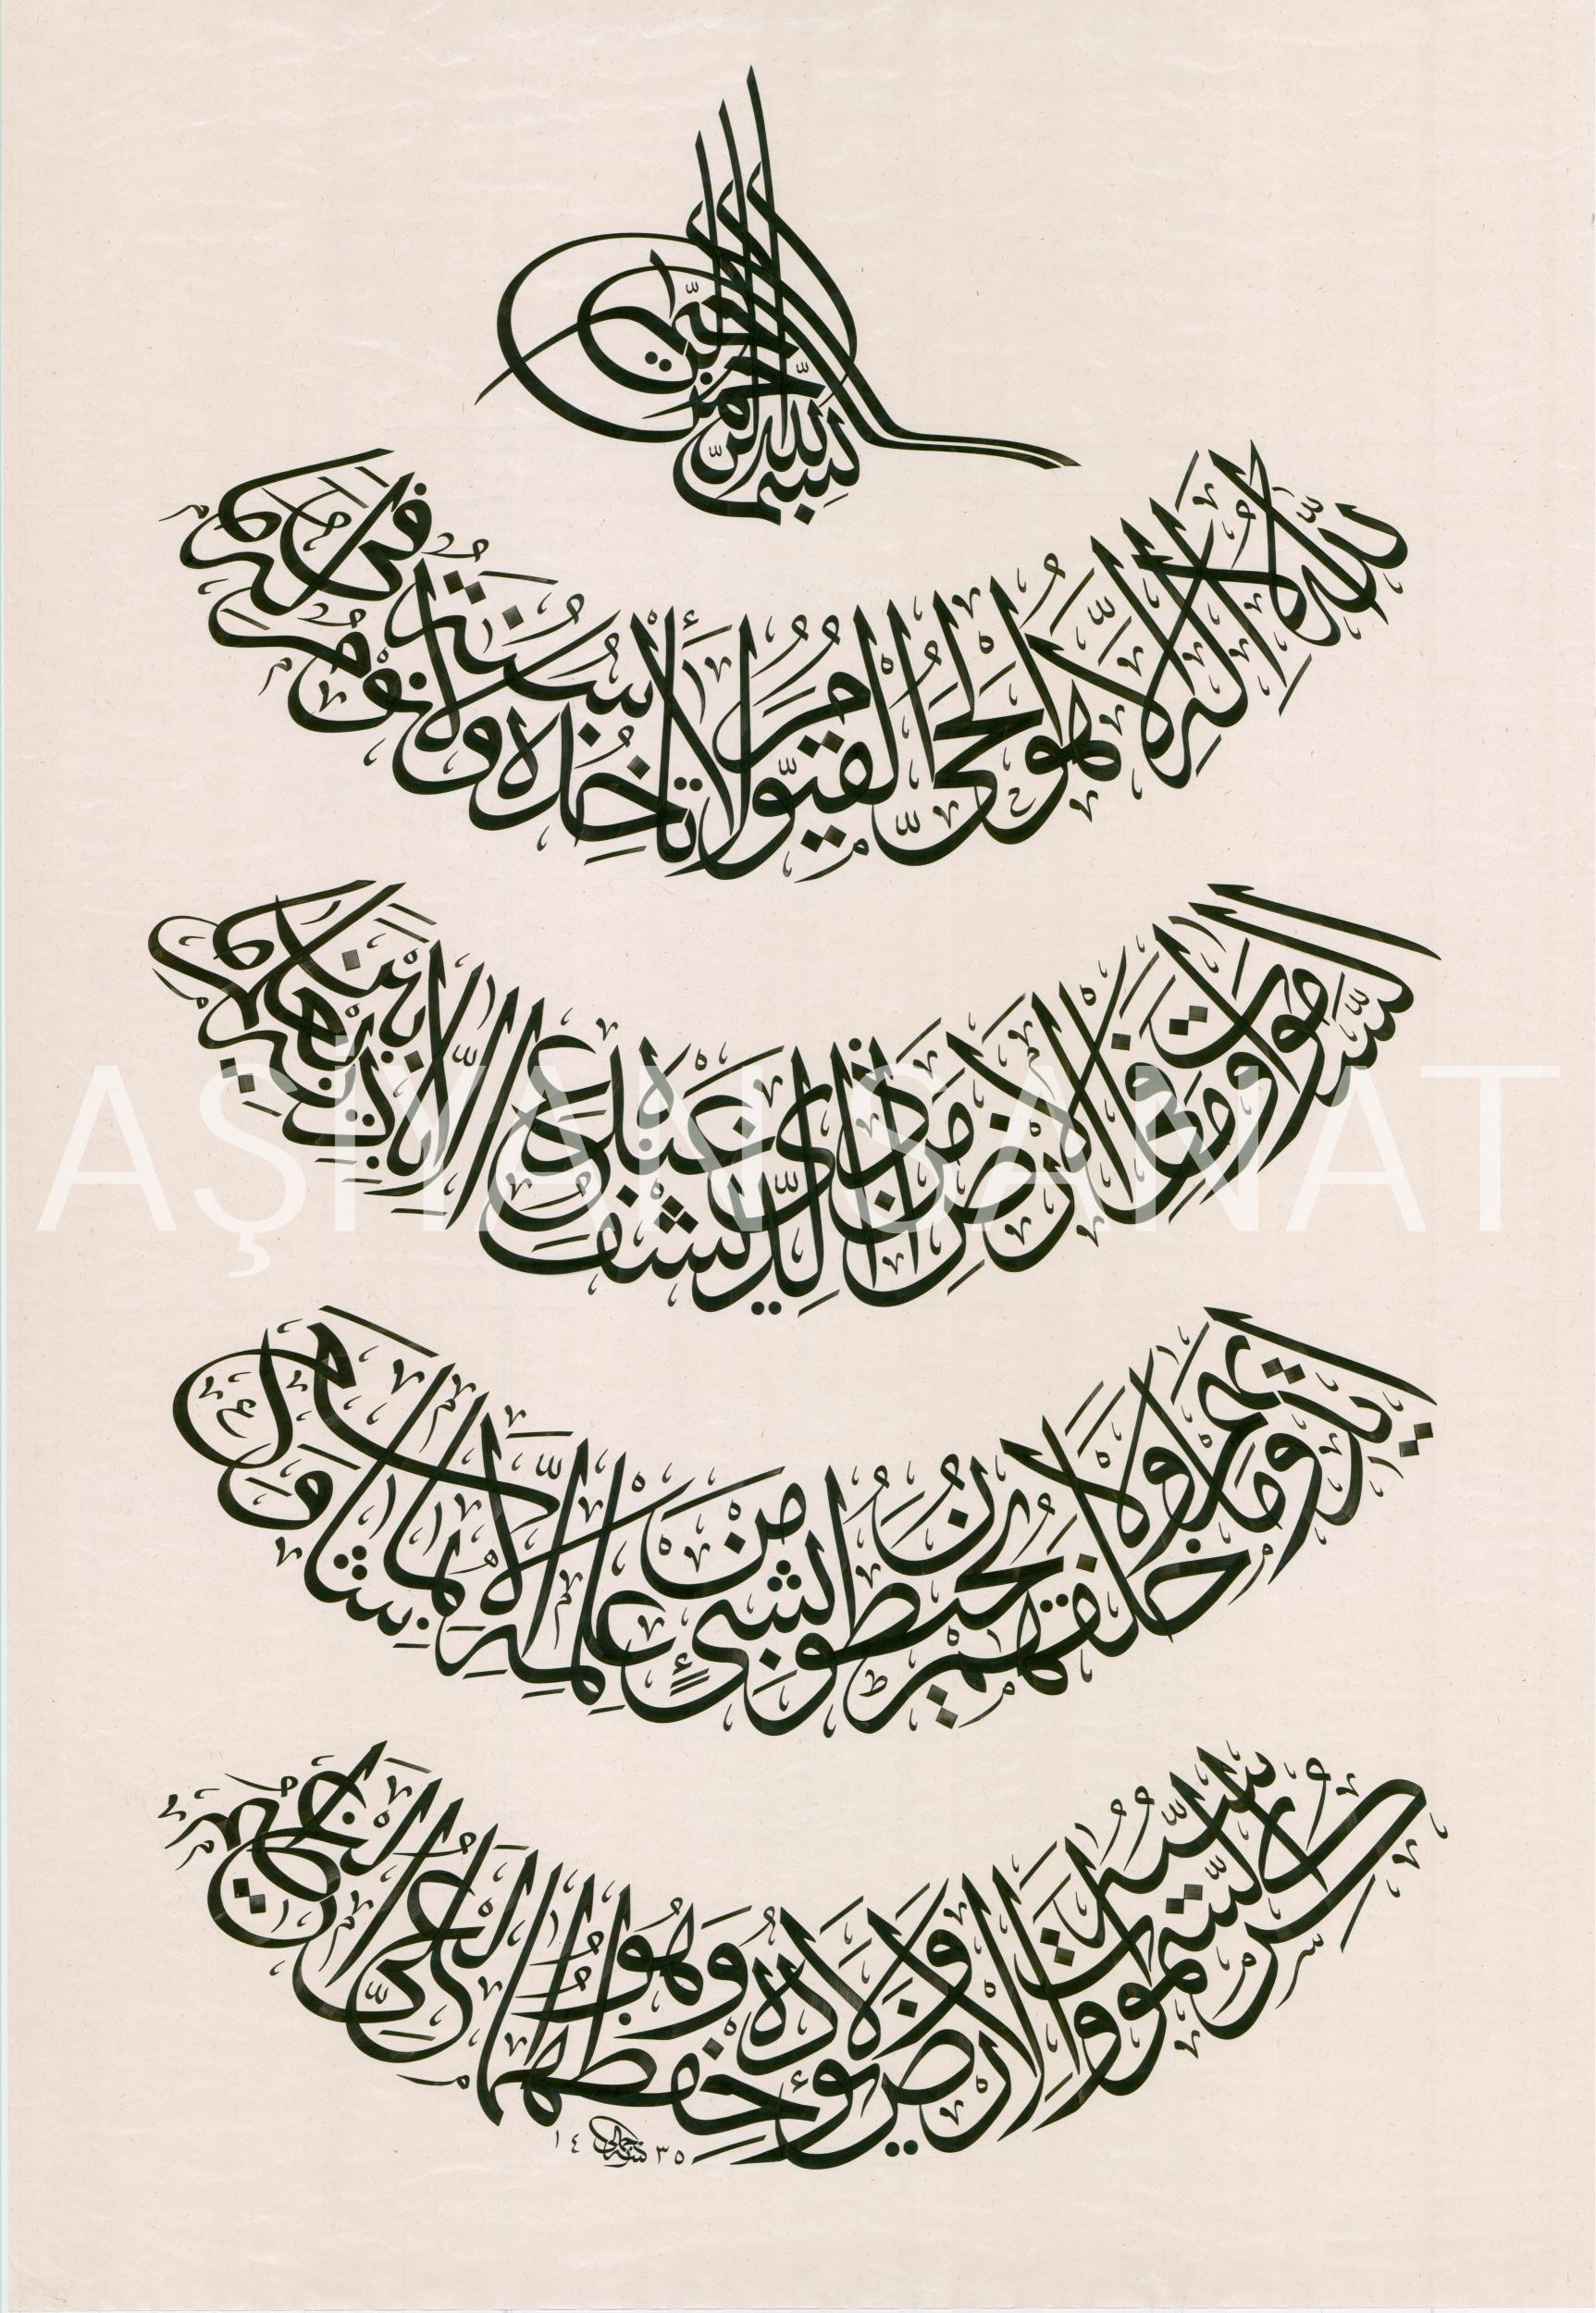 بسم الله الرحمن الرحيم
الله لا إله إلا هو الحي القيوم لا تأخذه سنة ولا نوم له ما في
السموات وما في الأرض من ذا الذي يشفع عنده إلا بإذنه يعلم ما بين
أيديهم وما خلفهم ولا يحيطون بشيء من علمه إلا بما شاء وسع
كرسيه السموات والأرض ولا يؤده حفظهما وهو العلي العظيم
١٤٣٥
AŞİYAN SANAT